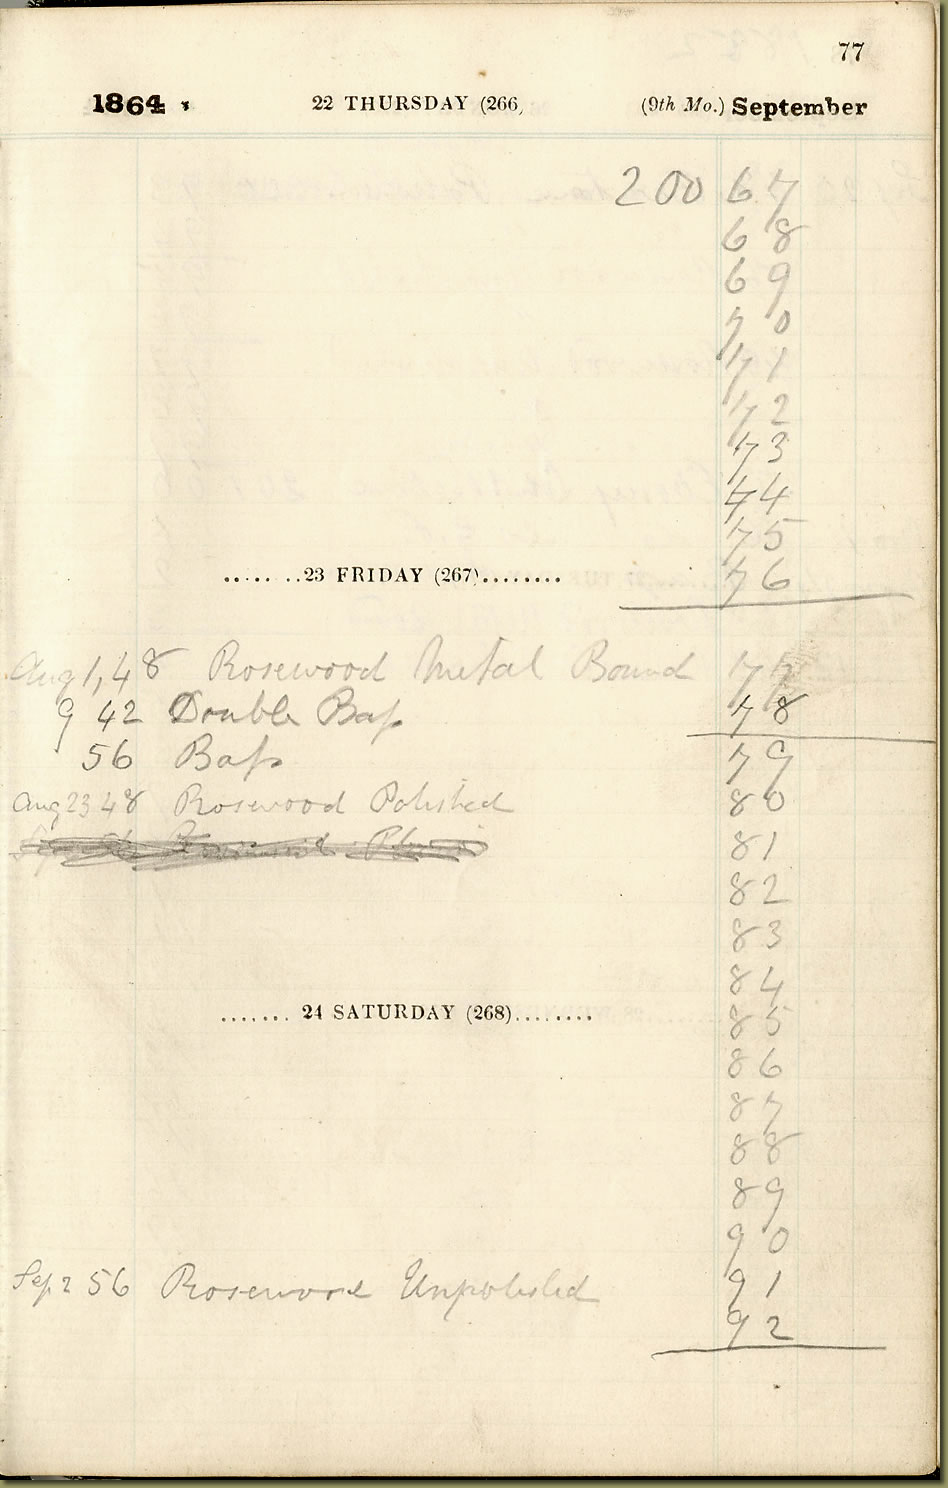 77
1864 22 THURSDAY (266, (9th Mo.) September
200 67
68
69
70
71
72
73
74
75
..... ..23 FRIDAY (267)........ 76
Aug 1, 48 Rosewood Metal Bound 77
9 42 Double Bass 78
56 Bass 79
Aug 23 48 Rosewood Polished 80
81
82
83
84
....... 24 SATURDAY (268)........ 85
86
87
88
89
90
Sep 2 56 Rosewood Unpolished 91
92